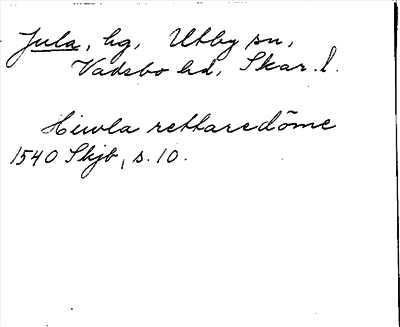 Jula, hg, Utby sn,
Vadsbo hd, Skar. l.
Hiwla rettaredöme
1540 Skjb, s. 10.